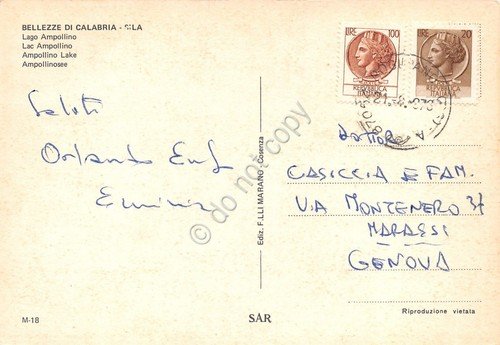 BELLEZZE DI CALABRIA - SILA
Lago Ampollino
Lac Ampollino
Ampollino Lake
Ampollinosee
LIRE 100
REPUBBLICA
ITALIANA
LIRE 20
REPUBBLICA
ITALIANA
Saluti
Orlando
dottor
CASICCIA E FAM.
VIA MONTENERO 34
MARASSI
GENOVA
Ediz. F.LLI MARANO - Cosenza
do not copy
M-18
SAR
Riproduzione vietata